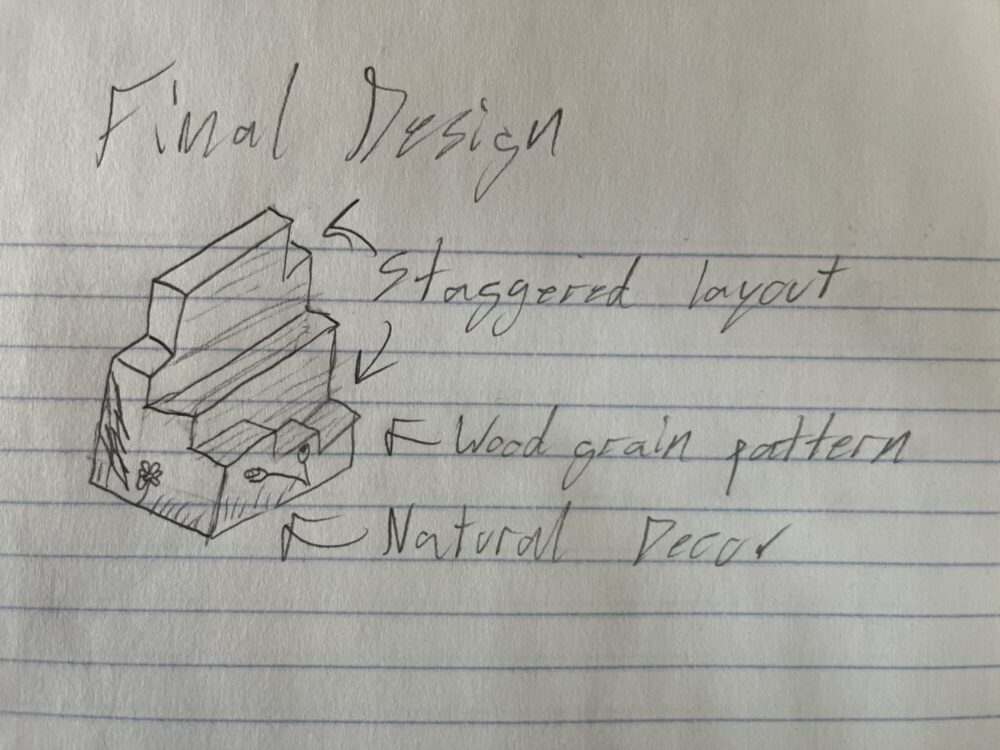 Final Design
Staggered layout
Wood grain pattern
Natural Decor